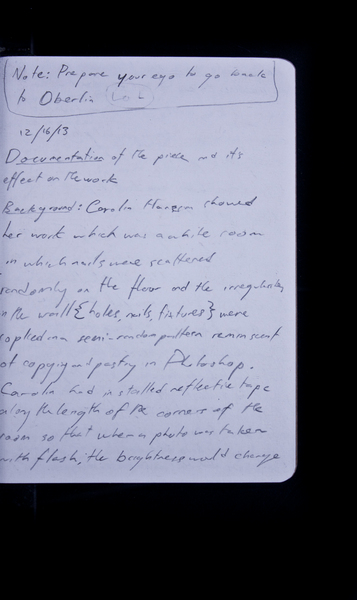 Note: Prepare your ego to go back
to Oberlin LOL
12/16/13
Documentation of the piece and its
effect on the work
Background: Carolin showed
her work which was a white room
in which nails were scattered
randomly on the floor and the irregularities
in the wall {holes, nails, fixtures} were
in a semi-random pattern reminiscent
of copying and pasting in Photoshop.
Carolin had installed reflective tape
along the length of the corners of the
room so that when a photo was taken
with flash, the brightness would change